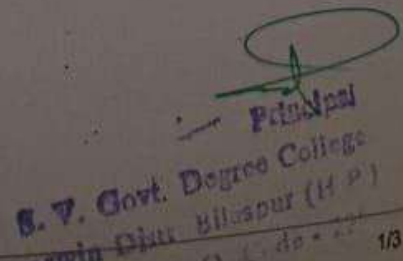 Principal
S. V. Govt. Degree College
Distt. Bilaspur (H.P.)
1/3